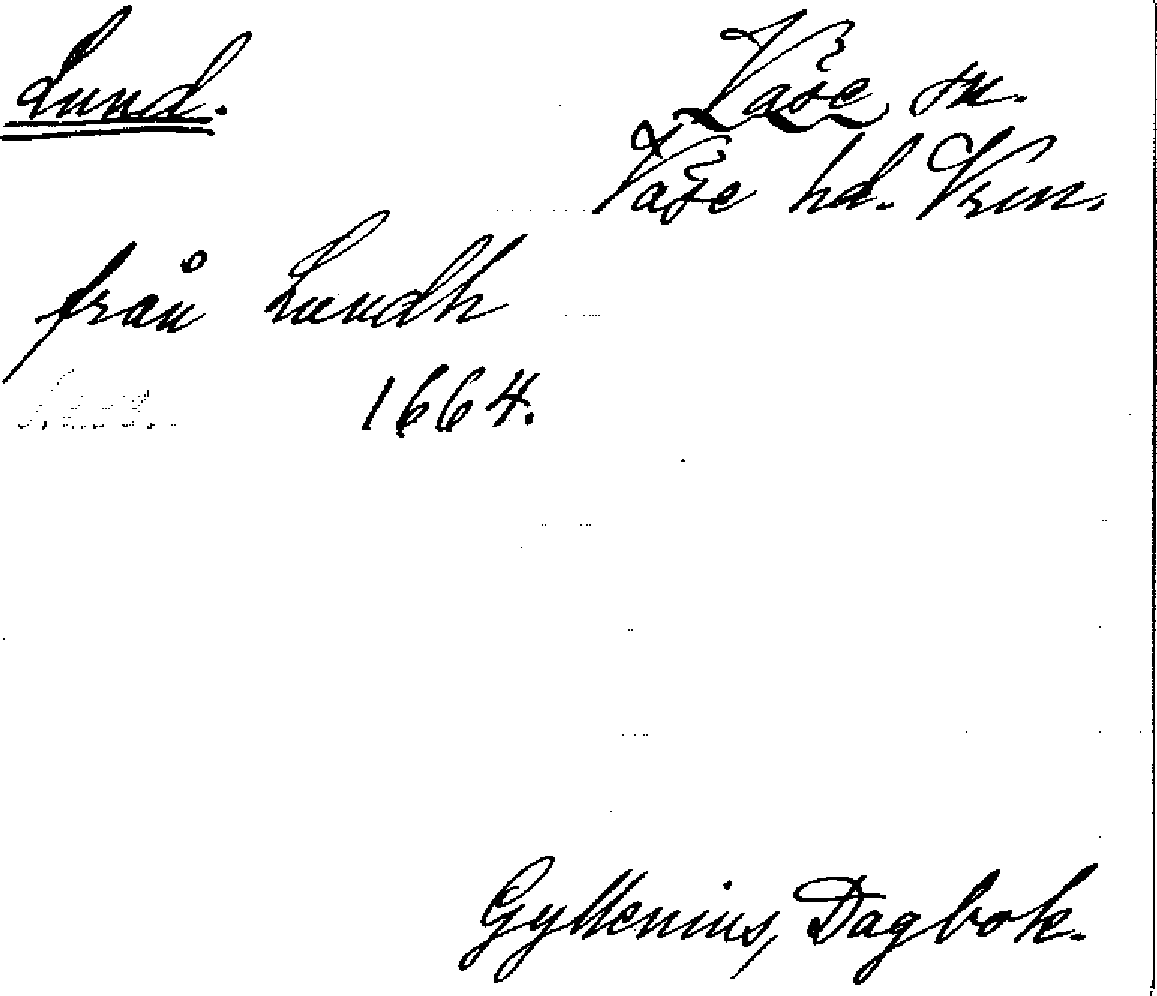 Lund.
Väse sn.
Väse hd. Vrm.
från Lundh
1664.
Gyllenius, Dagbok.